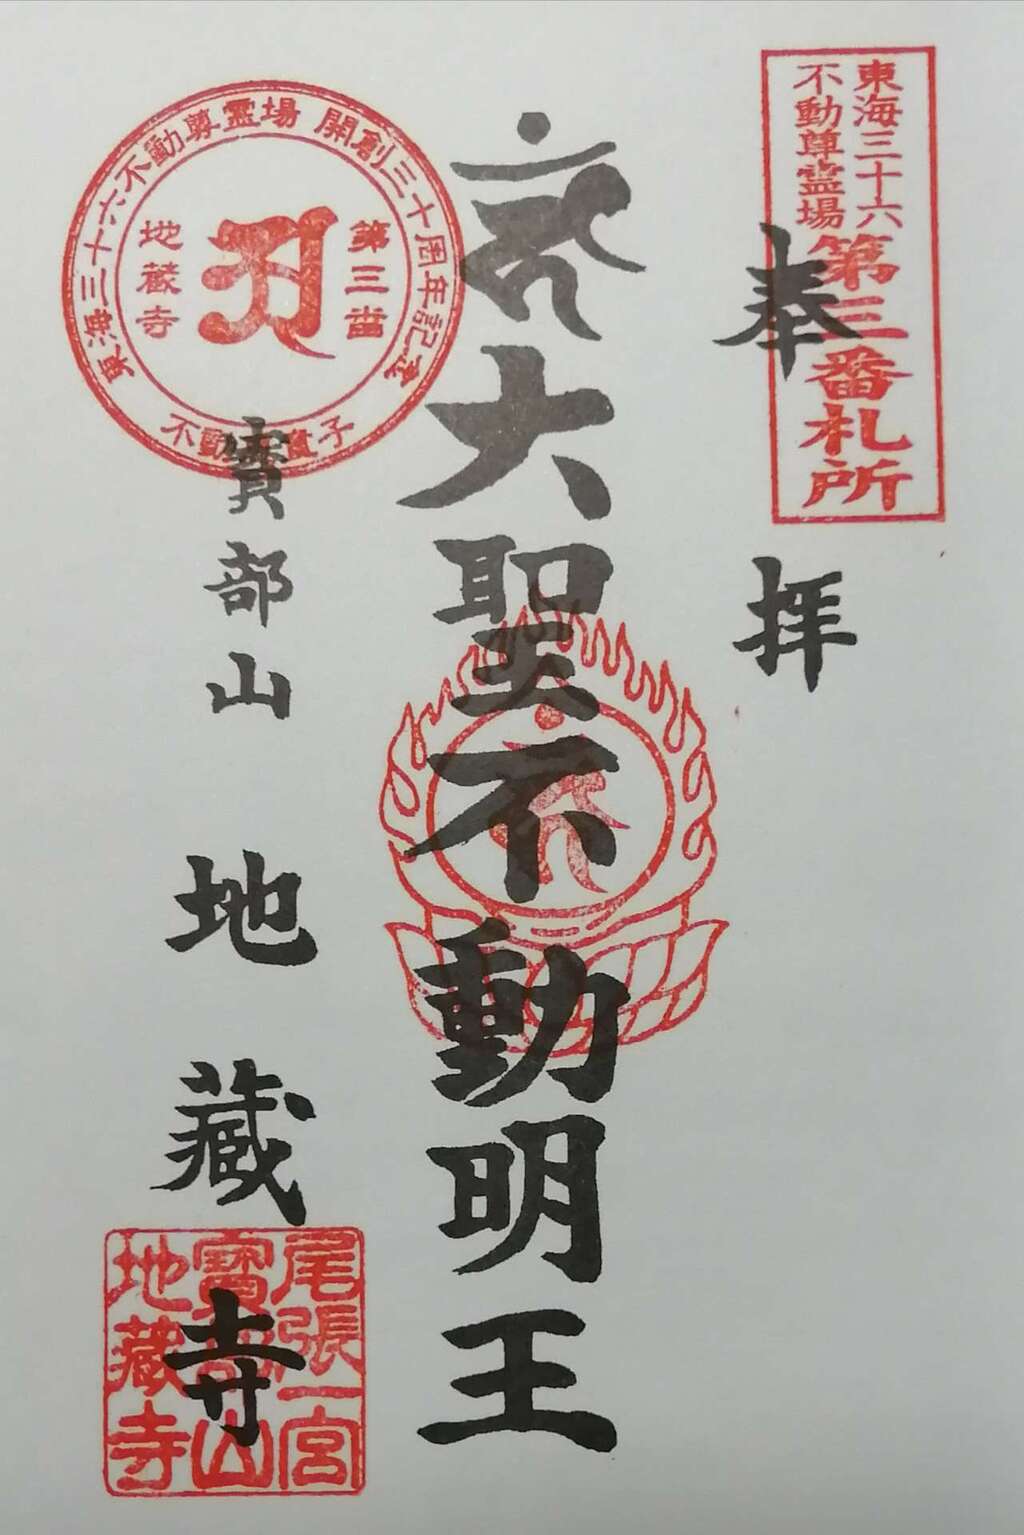 東海三十六
不動尊霊場
第三番札所
奉拝
大聖不動明王
寳部山 地藏寺
東海三十六不動尊霊場 開創三十周年記念
不動 童子
第三番
地蔵寺
尾張一宮
寳部山
地藏寺